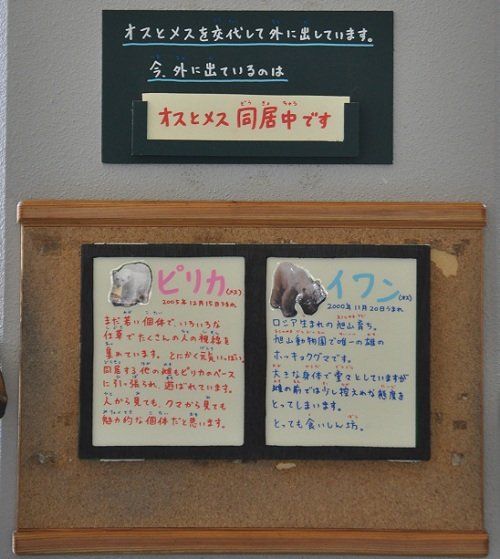 オスとメスを交代して外に出しています。
今、外に出ているのは
オスとメス同居中です
ピリカ(メス)
2005年12月15日うまれ
まだ若い個体で、いろいろな
仕草でたくさんの人の視線を
集めています。とにかく元気いっぱい。
同居する他の雌もピリカのペース
に引っ張られ、遊ばれています。
人から見ても、クマから見ても
魅力的な個体だと思います。
イワン(オス)
2000年11月20日うまれ
ロシア生まれの旭山育ち。
旭山動物園で唯一の雄の
ホッキョクグマです。
大きな身体で堂々としていますが
雌の前では少し控えめな態度を
とってしまいます。
とっても食いしん坊。